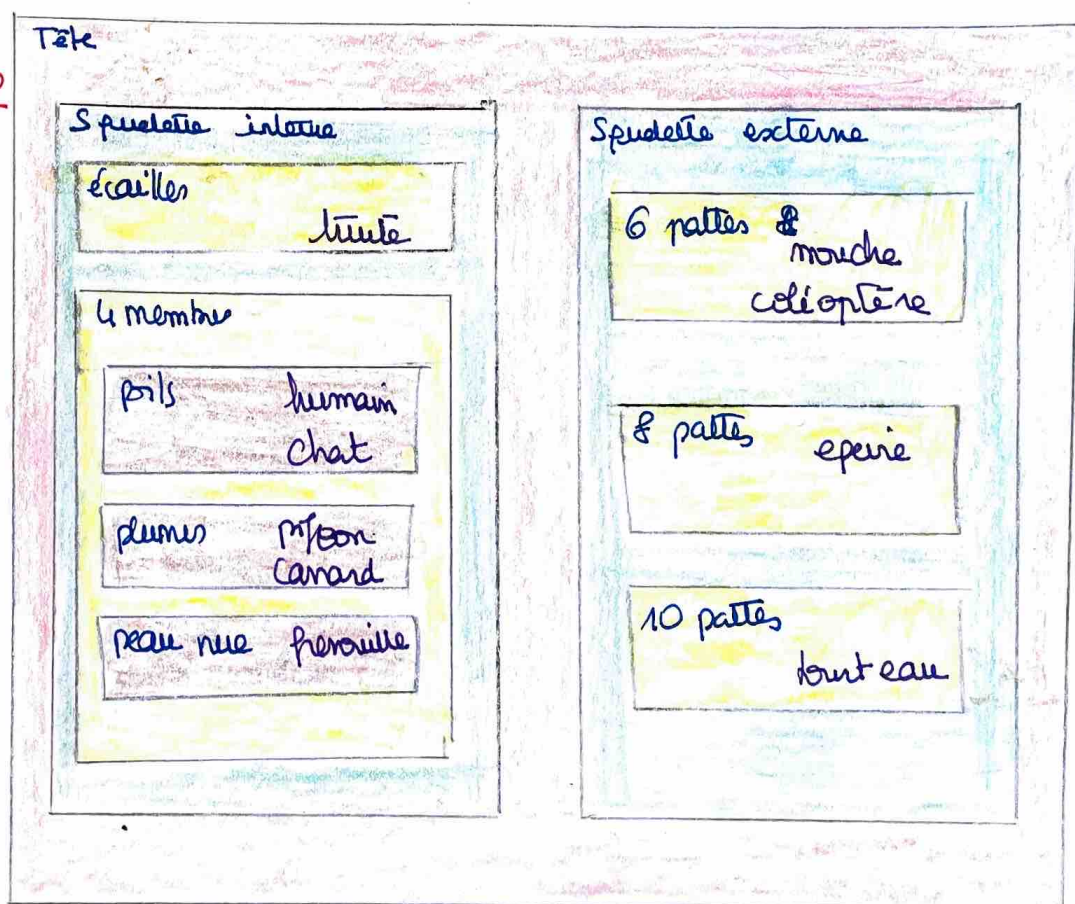 Tête
Squelette interne
écailles
truite
4 membres
poils humain
chat
plumes pigeon
canard
peau nue grenouille
Squelette externe
6 pattes
mouche
coléoptère
8 pattes epeire
10 pattes
tourteau